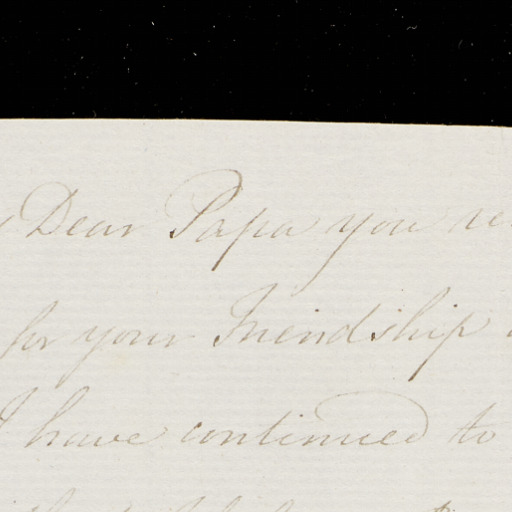 Dear Papa you
for your Friendship
I have continued to